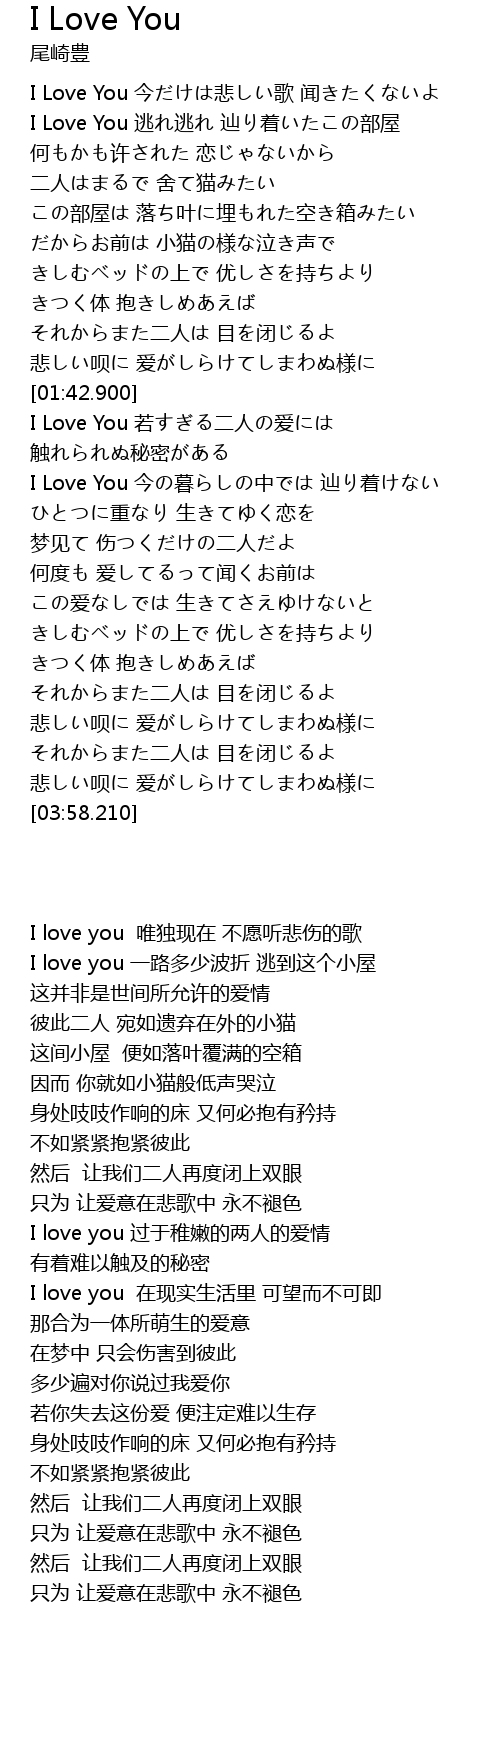 I Love You
尾崎豊
I Love You 今だけは悲しい歌 闻きたくないよ
I Love You 逃れ逃れ 辿り着いたこの部屋
何もかも许された 恋じゃないから
二人はまるで 舍て猫みたい
この部屋は 落ち叶に埋もれた空き箱みたい
だからお前は 小猫の様な泣き声で
きしむベッドの上で 优しさを持ちより
きつく体 抱きしめあえば
それからまた二人は 目を闭じるよ
悲しい呗に 爱がしらけてしまわぬ様に
[01:42.900]
I Love You 若すぎる二人の爱には
触れられぬ秘密がある
I Love You 今の暮らしの中では 辿り着けない
ひとつに重なり 生きてゆく恋を
梦见て 伤つくだけの二人だよ
何度も 爱してるって闻くお前は
この爱なしでは 生きてさえゆけないと
きしむベッドの上で 优しさを持ちより
きつく体 抱きしめあえば
それからまた二人は 目を闭じるよ
悲しい呗に 爱がしらけてしまわぬ様に
それからまた二人は 目を闭じるよ
悲しい呗に 爱がしらけてしまわぬ様に
[03:58.210]
I love you  唯独现在 不愿听悲伤的歌
I love you 一路多少波折 逃到这个小屋
这并非是世间所允许的爱情
彼此二人 宛如遗弃在外的小猫
这间小屋  便如落叶覆满的空箱
因而 你就如小猫般低声哭泣
身处吱吱作响的床 又何必抱有矜持
不如紧紧抱紧彼此
然后  让我们二人再度闭上双眼
只为 让爱意在悲歌中 永不褪色
I love you 过于稚嫩的两人的爱情
有着难以触及的秘密
I love you  在现实生活里 可望而不可即
那合为一体所萌生的爱意
在梦中 只会伤害到彼此
多少遍对你说过我爱你
若你失去这份爱 便注定难以生存
身处吱吱作响的床 又何必抱有矜持
不如紧紧抱紧彼此
然后  让我们二人再度闭上双眼
只为 让爱意在悲歌中 永不褪色
然后  让我们二人再度闭上双眼
只为 让爱意在悲歌中 永不褪色